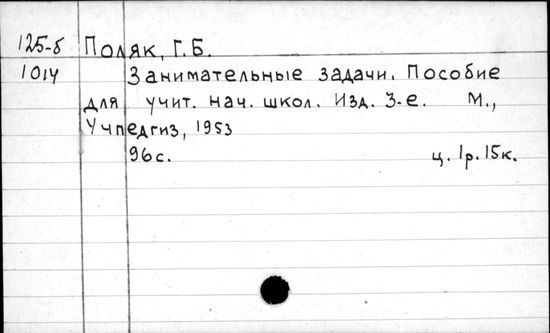 125-б Поляк, Г.Б.
1014 Занимательные задачи. Пособие
для учит. нач. школ. Изд. 3-е. М.,
Учпедгиз, 1953
96с. ц. 1р.15к.